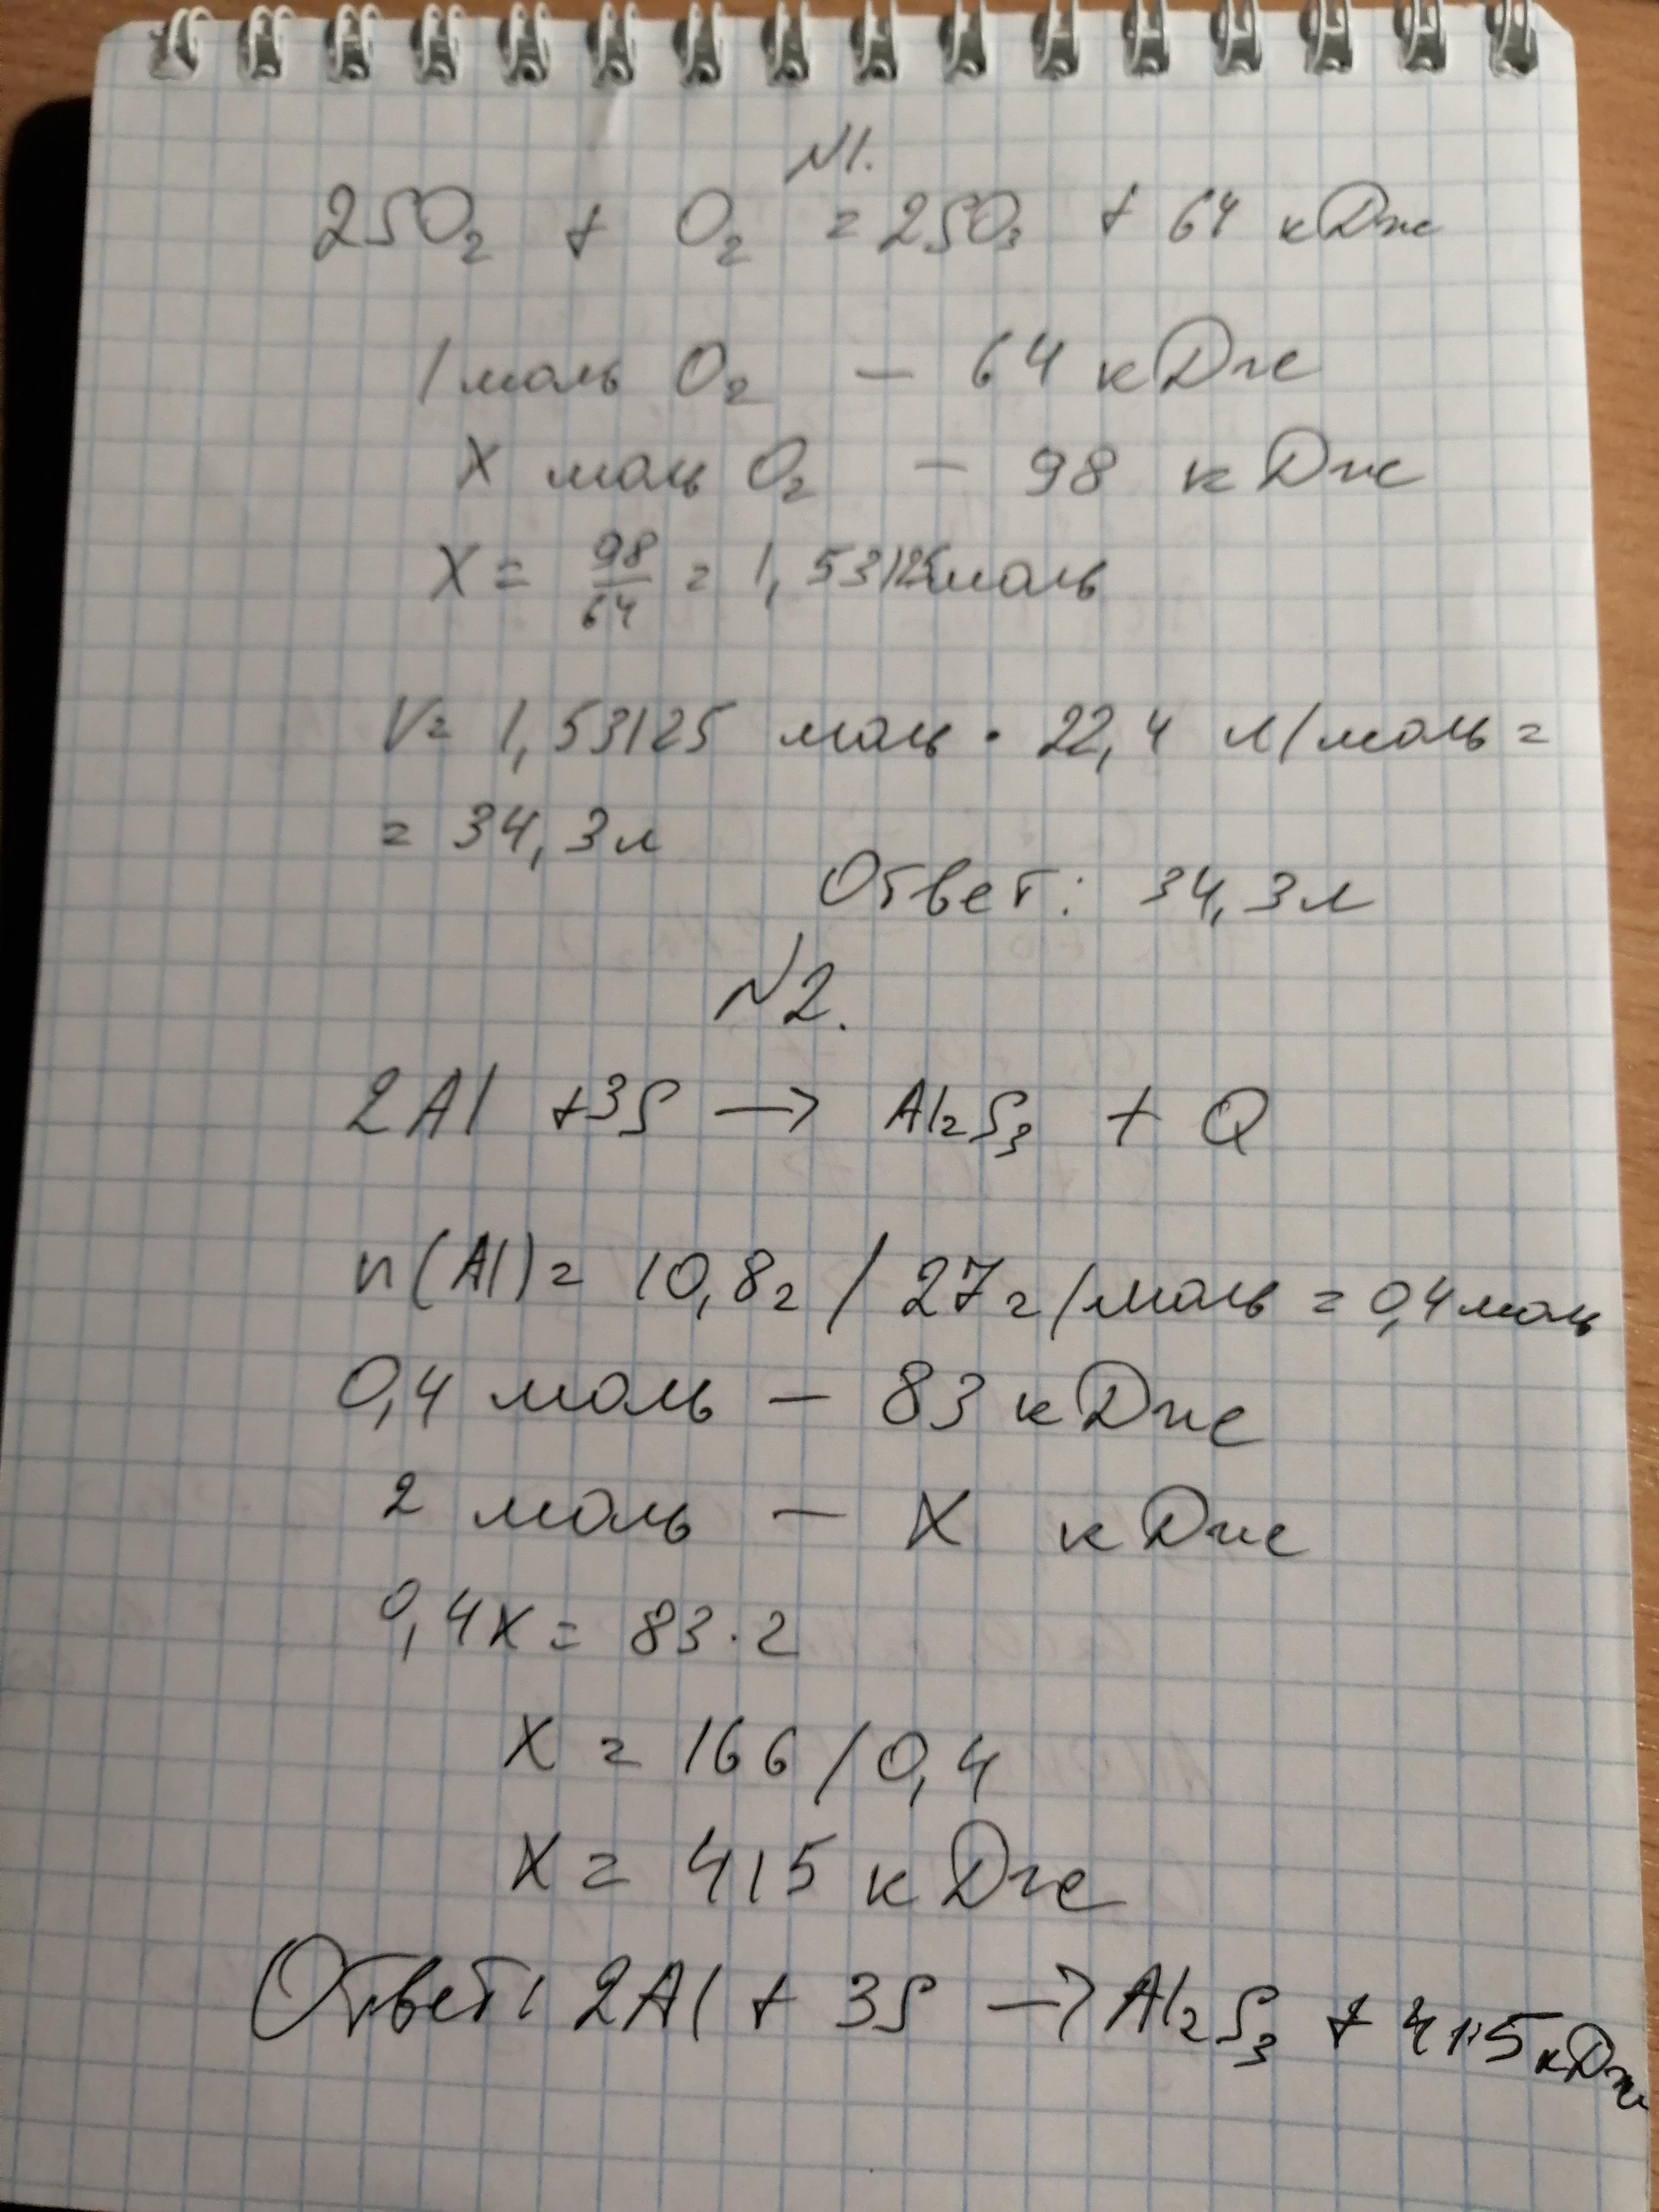 №1.
2SO₂ + O₂ = 2SO₃ + 64 кДж
1 моль O₂ — 64 кДж
X моль O₂ — 98 кДж
X = 98/64 = 1,53125моль
V= 1,53125 моль · 22,4 л/моль =
= 34,3л
Ответ: 34,3л
№2.
2Al +3S → Al₂S₃ + Q
n(Al)= 10,8г / 27г/моль = 0,4моль
0,4 моль — 83 кДж
2 моль — X кДж
0,4X = 83·2
X = 166/0,4
X = 415 кДж
Ответ: 2Al + 3S → Al₂S₃ + 415кДж